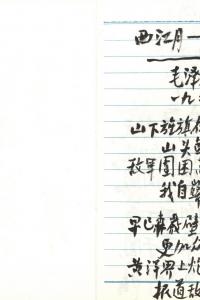 西江月一
毛泽
一九
山下旌旗
山头
敌军围困
我自
早已森严壁
更加
黄洋界上炮
报道敌